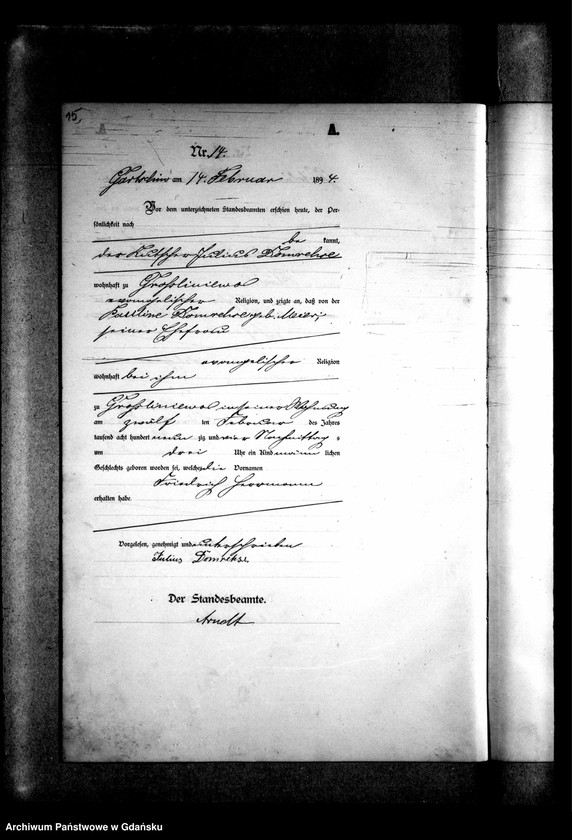 15,
A.
Nr. 14.
am 14. Februar 1894.
Vor dem unterzeichneten Standesbeamten erschien heute, der Per-
sönlichkeit nach
be kannt,
der Kutscher Julius Domrehse
wohnhaft zu Groß
evangelischer Religion, und zeigte an, daß von der
Domrehse geb. Meier,
seiner Ehefrau
evangelischer Religion
wohnhaft bei ihm
zu Groß in seiner Wohnung
am zwölf ten Februar des Jahres
tausend acht hundert neun zig und vier Nachmittag s
um drei Uhr ein Kind männ lichen
Geschlechts geboren worden sei, welches die Vornamen
Friedrich Herrmann
erhalten habe.
Vorgelesen, genehmigt und unterschrieben
Julius Domrehse
Der Standesbeamte.
Arndt
Archiwum Państwowe w Gdańsku